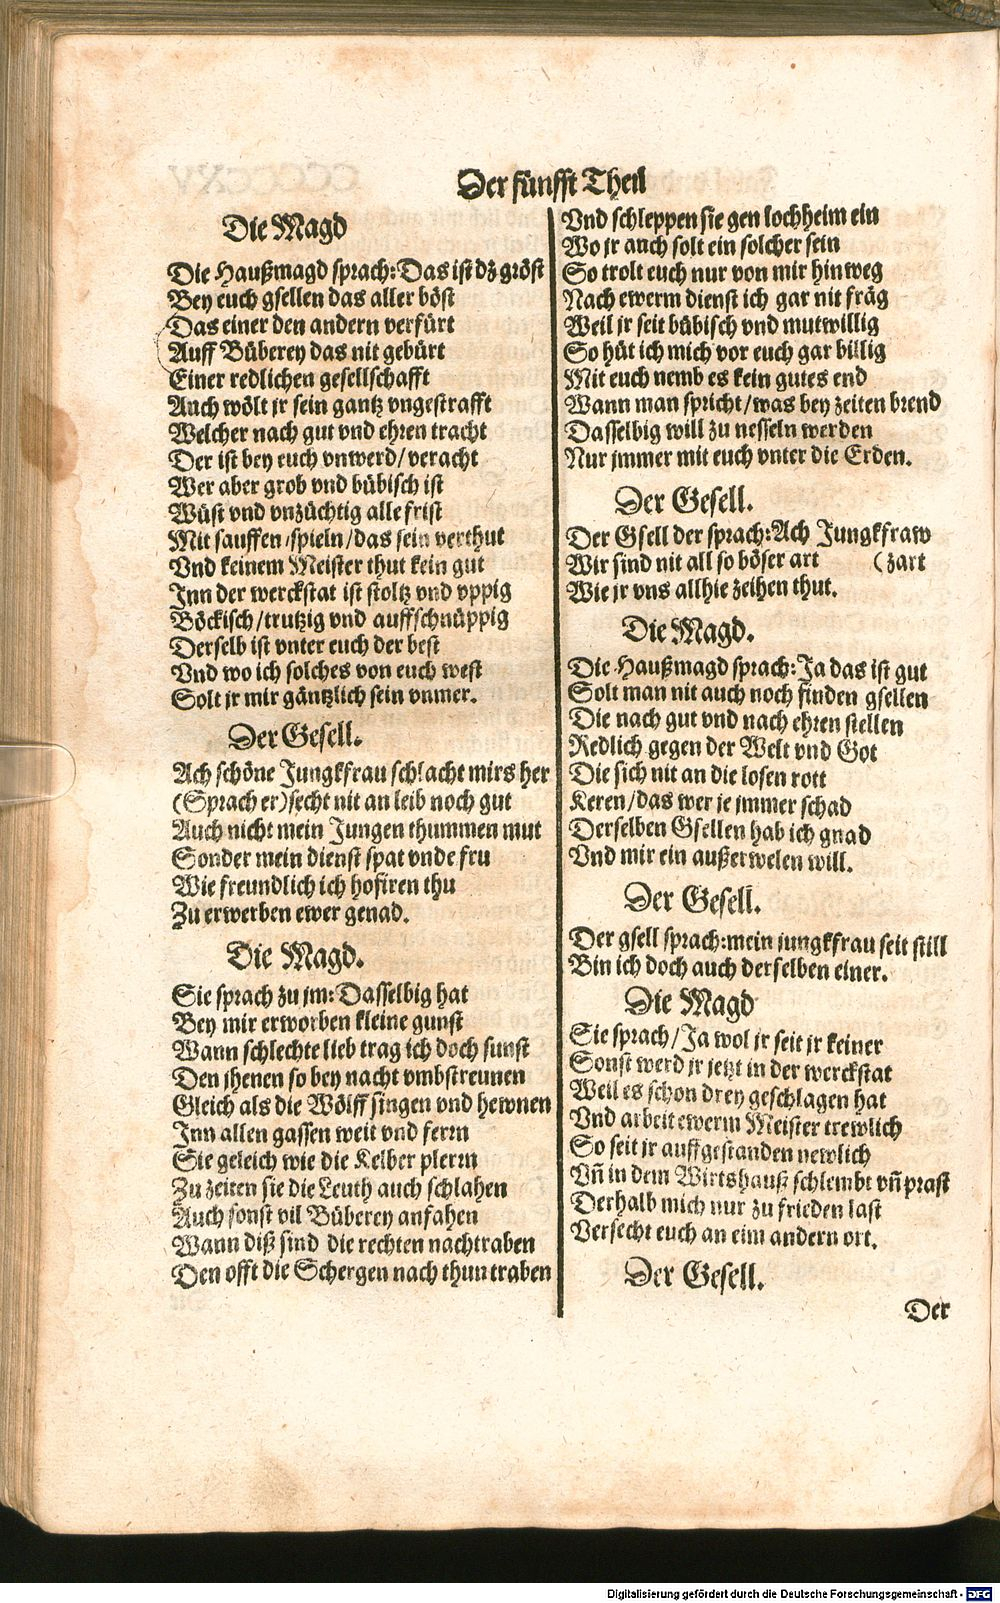 Der fünfft Theil
Die Magd
Die Haußmagd sprach: Das ist dz gröst
Bey euch gsellen das aller böst
Das einer den andern verfürt
Auff Büberey das nit gebürt
Einer redlichen gesellschafft
Auch wölt jr sein gantz vngestrafft
Welcher nach gut vnd ehren tracht
Der ist bey euch vnwerd/veracht
Wer aber grob vnd bübisch ist
Wüst vnd vnzüchtig alle frist
Mit sauffen/spieln/das sein verthut
Vnd keinem Meister thut kein gut
Inn der werckstat ist stoltz vnd vppig
Böckisch/trutzig vnd auffschnüppig
Derselb ist vnter euch der best
Vnd wo ich solches von euch west
Solt jr mir gäntzlich sein vnmer.
Der Gesell.
Ach schöne Jungkfrau schlacht mirs her
(Sprach er) secht nit an leib noch gut
Auch nicht mein Jungen thummen mut
Sonder mein dienst spat vnde fru
Wie freundlich ich hofiren thu
Zu erwerben ewer genad.
Die Magd.
Sie sprach zu jm: Dasselbig hat
Bey mir erworben kleine gunst
Wann schlechte lieb trag ich doch sunst
Den jhenen so bey nacht vmbstreunen
Gleich als die Wölff singen vnd hewnen
Inn allen gassen weit vnd ferrn
Sie geleich wie die Kelber plerrn
Zu zeiten sie die Leuth auch schlahen
Auch sonst vil Büberey anfahen
Wann diß sind die rechten nachtraben
Den offt die Schergen nach thun traben
Vnd schleppen sie gen lochheim ein
Wo jr auch solt ein solcher sein
So trolt euch nur von mir hinweg
Nach ewerm dienst ich gar nit fräg
Weil jr seit bübisch vnd mutwillig
So hüt ich mich vor euch gar billig
Mit euch nemb es kein gutes end
Wann man spricht/was bey zeiten brend
Dasselbig will zu nesseln werden
Nur jmmer mit euch vnter die Erden.
Der Gesell.
Der Gsell der sprach: Ach Jungkfraw
Wir sind nit all so böser art (zart
Wie jr vns allhie zeihen thut.
Die Magd.
Die Haußmagd sprach: Ja das ist gut
Solt man nit auch noch finden gsellen
Die nach gut vnd nach ehren stellen
Redlich gegen der Welt vnd Got
Die sich nit an die losen rott
Keren/das wer je jmmer schad
Derselben Gsellen hab ich gnad
Vnd mir ein außerwelen will.
Der Gesell.
Der gsell sprach: mein jungkfrau seit still
Bin ich doch auch derselben einer.
Die Magd
Sie sprach/Ja wol jr seit jr keiner
Sonst werd jr jetzt in der werckstat
Weil es schon drey geschlagen hat
Vnd arbeit ewerm Meister trewlich
So seit jr auffgestanden newlich
Vn̄ in dem Wirtshauß schlembt vn̄ prast
Derhalb mich nur zu frieden last
Versecht euch an eim andern ort.
Der Gesell.
Der
Digitalisierung gefördert durch die Deutsche Forschungsgemeinschaft - DFG